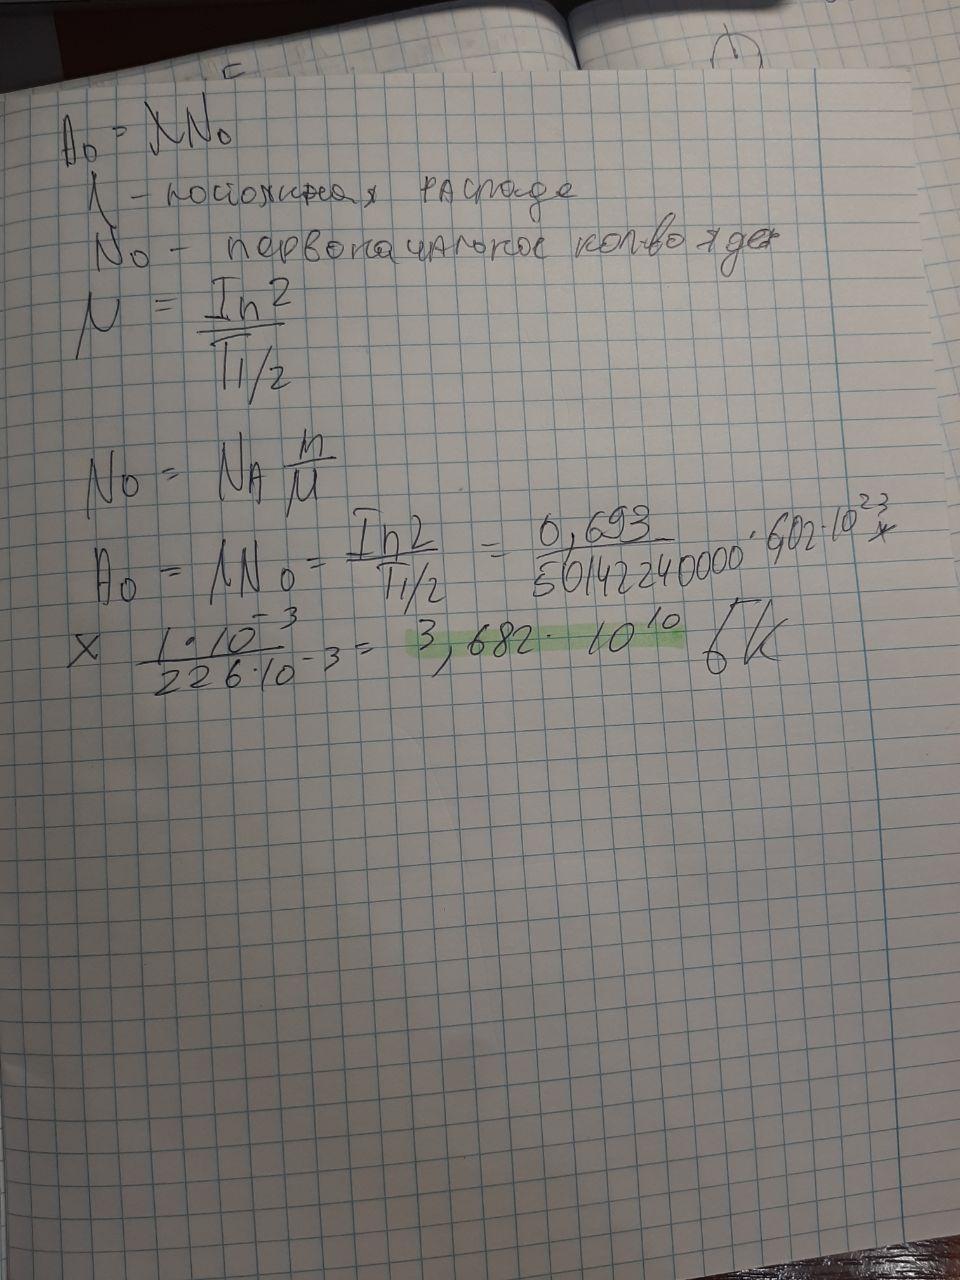 A₀ = λN₀
λ - постоянная распада
N₀ - первоначальное кол-во ядер
λ = In2 / T1/2
N₀ = NA m / M
A₀ = λN₀ = In2 / T1/2 = 0,693 / 50142240000 · 602·10²³ ×
× 1·10⁻³ / 226·10⁻³ = 3,682 · 10¹⁰ Бк